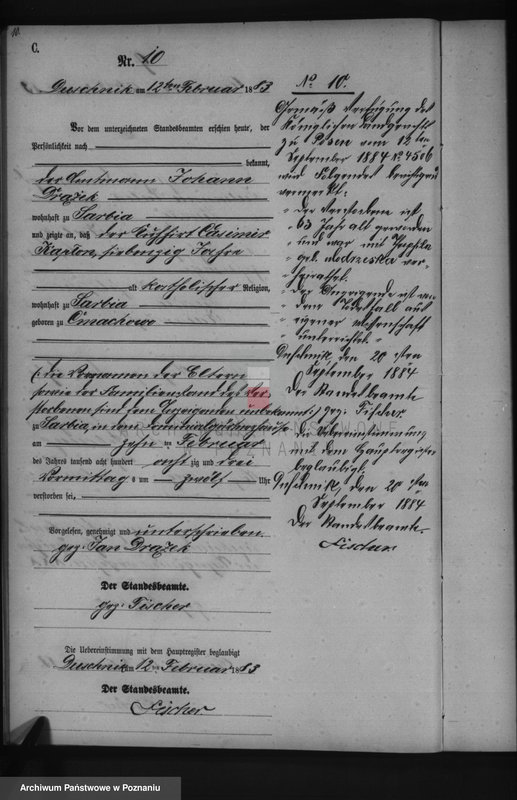 10.
C.
Nr. 10
Duschnik am 12ten Februar 1883
Vor dem unterzeichneten Standesbeamten erschien heute, der
Persönlichkeit nach
bekannt,
der Amtmann Johann
Drążek
wohnhaft zu Sarbia
und zeigte an, daß der Kuhhirt Casimir
Kanton, siebenzig Jahre
alt katholischer Religion,
wohnhaft zu Sarbia
geboren zu Cmachowo
(: die Vornamen der Eltern
sowie der Familienstand des Ver-
storbenen sind dem Anzeigenden unbekannt :)
zu Sarbia, in dem
am zehn ten Februar
des Jahres tausend acht hundert acht zig und drei
Vormittag s um zwölf Uhr
verstorben sei,
Vorgelesen, genehmigt und unterschrieben
gez: Jan Drążek
Der Standesbeamte.
gez: Fischer
Die Uebereinstimmung mit dem Hauptregister beglaubigt
Duschnik am 12 ten Februar 1883
Der Standesbeamte.
Fischer.
No 10.
Gemäß Verfügung des
Königlichen Landgerichts
zu Posen vom 13ten
September 1884 No 4506
wird Folgendes berichtigend
vermerkt:
" der Verstorbene ist
" 65 Jahr alt geworden
" und war mit Josepha
" geb. Modrzeska ver-
" heirathet.
" Der Anzeigende ist von
" dem Todesfall aus
" eigener Wissenschaft
" unterrichtet."
Duschnik, den 20sten
September 1884
Der Standesbeamte
gez. Fischer
Die Uebereinstimmung
mit dem Hauptregister
beglaubigt.
Duschnik, den 20sten
September 1884
Der Standesbeamte.
Fischer
ARCHIWUM PAŃSTWOWE
W POZNANIU
Archiwum Państwowe w Poznaniu